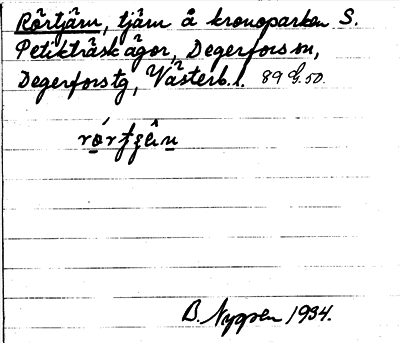 Rörtjärn, tjärn å kronoparken S.
Petikträskågor, Degerfors sn,
Degerforstg, Västerb. l. 89 G. 50.
B. Nygren 1934.